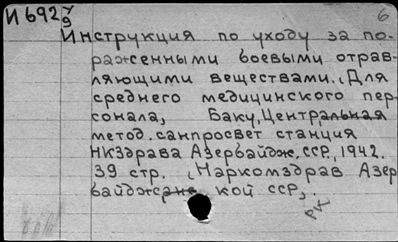 И 692 у/9
6
Инструкция по уходу за по-
раженными боевыми отрав-
ляющими веществами. (Для
среднего медицинского пер-
сонала, Баку, Центральная
метод. санпросвет станция
НКЗдрава Азербайдж. ССР, 1942.
39 стр. (Наркомздрав Азер
байджанс кой ССР,.
РК